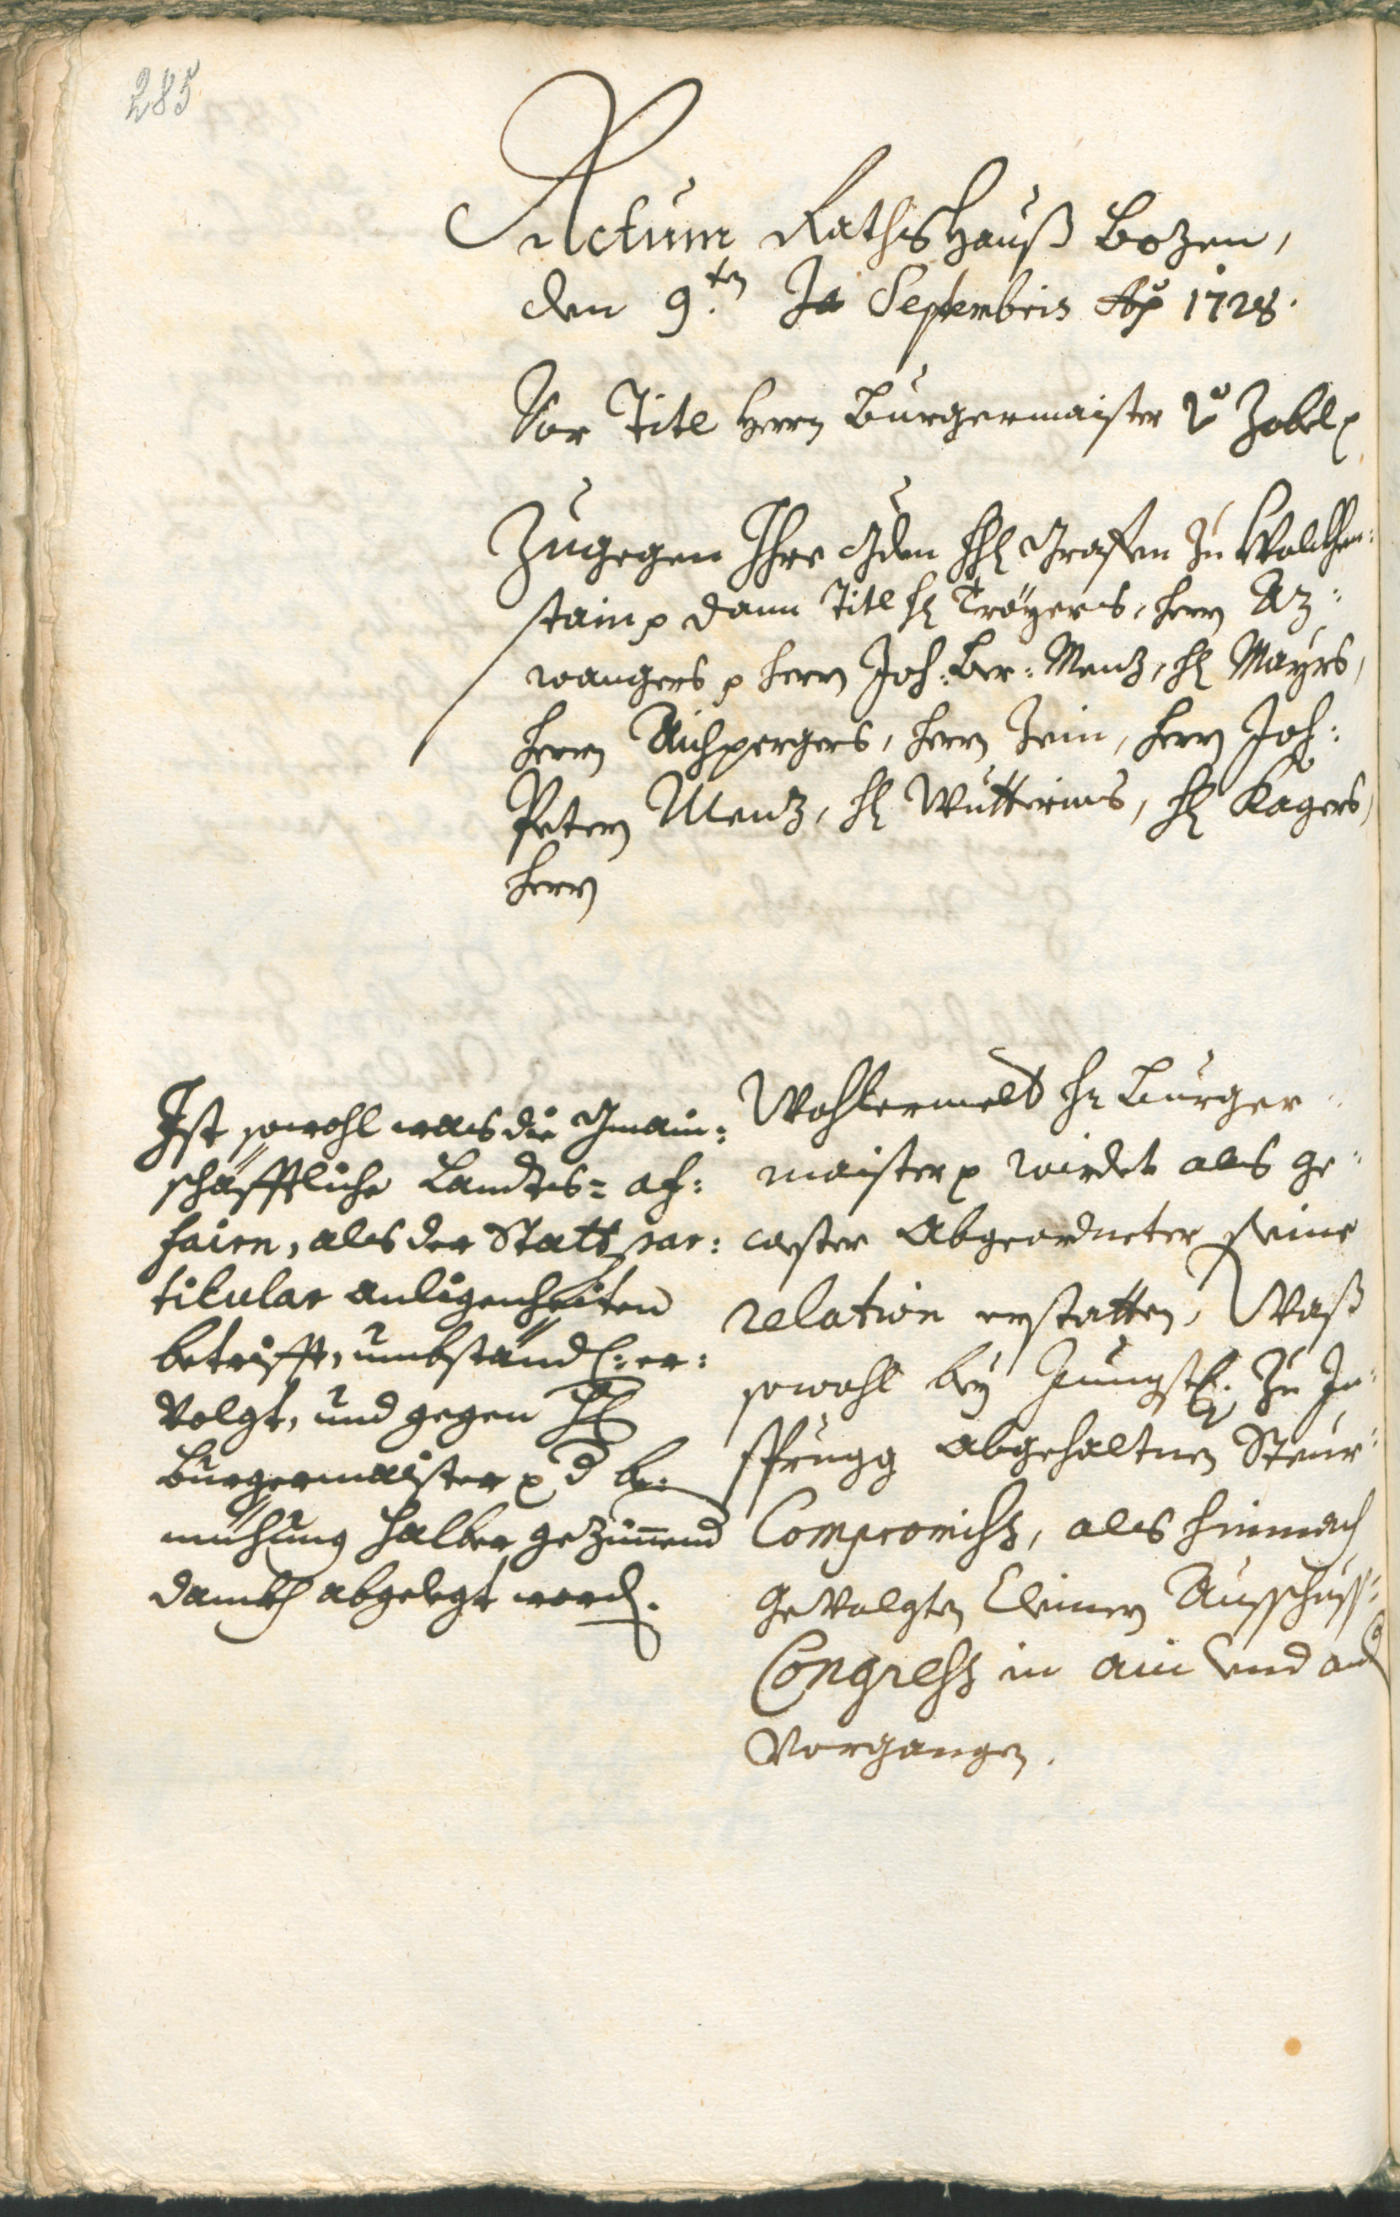 285
Actum Rathshauß Bozen,
den 9.ten Septembris Ao 1728.
Vor Titl Herrn Burgermaister v Zobel p
Zugegen Ihro Gden HE Grafen zu Wolckhen:
stain p dann Titl HE Troyers, herrn Az:
wangers p herrn Joh: Bor: Menz, HE Mayrs,
herrn Aichpergers, herrn Irin, herrn Joh:
Petern Menz, HE Wutterins, HE Kagers,
herrn
Ist sowohl was die Gmain:
schäfftliche Landts= af:
fairn, als der Statt par:
ticular anligenheiten
betrifft, umbständl: er:
volgt, und gegen HE
Burgermaister p d be:
mühung halber gezimend
danckh abgelegt word.
Wohlermelt Hr Burger
maister p wirdet als ge:
wester Abgeordneter seine
relation erstatten, Waß
sowohl bey jüngstE. zu In:
sprugg abgehaltnen Steur
Compromiss, als hinnach
gevolgten Clainen Ausschuss:
Congress in ain und and
vorgangen.